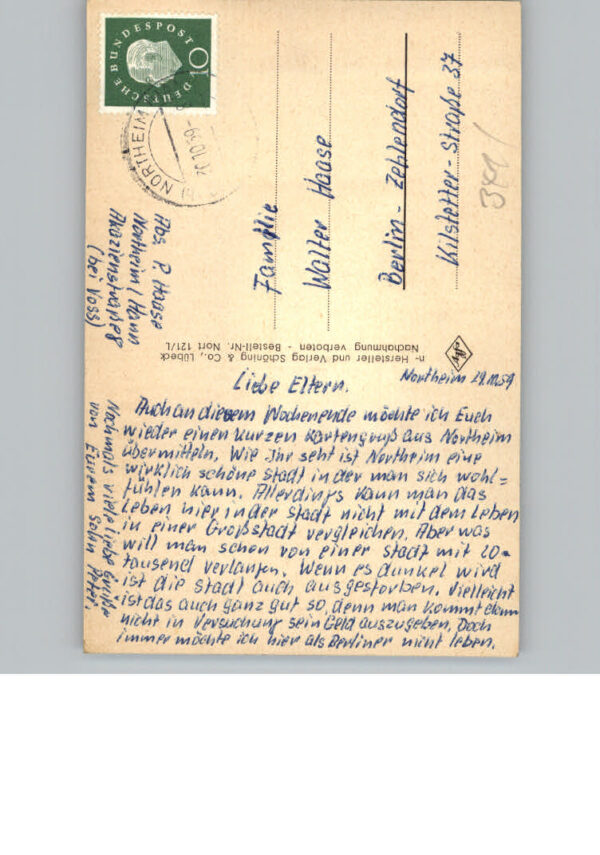 DEUTSCHE BUNDESPOST
10
NORTHEIM
Abs. P. Haase
Northeim / Hann
(bei Voss)
Familie
Walter Haase
Berlin - Zehlendorf
Kilstetter-Straße 37
n- Hersteller und Verlag Schöning & Co., Lübeck
Nachahmung verboten - Bestell-Nr. Nort 121/L
Northeim
Liebe Eltern.
Auch an diesem Wochenende möchte ich Euch
wieder einen kurzen Kartengruß aus Northeim
übermitteln. Wie Ihr seht ist Northeim eine
wirklich schöne Stadt in der man sich wohl=
fühlen kann. Allerdings kann man das
Leben hier in der Stadt nicht mit dem Leben
in einer Großstadt vergleichen. Aber was
will man schon von einer Stadt mit 20-
tausend verlangen. Wenn es dunkel wird
ist die Stadt auch ausgestorben. Vielleicht
ist das auch ganz gut so, denn man kommt dann
nicht in Versuchung sein Geld auszugeben. Doch
immer möchte ich hier als Berliner nicht leben.
Nochmals viele liebe Grüße
von Eurem Sohn Peter.